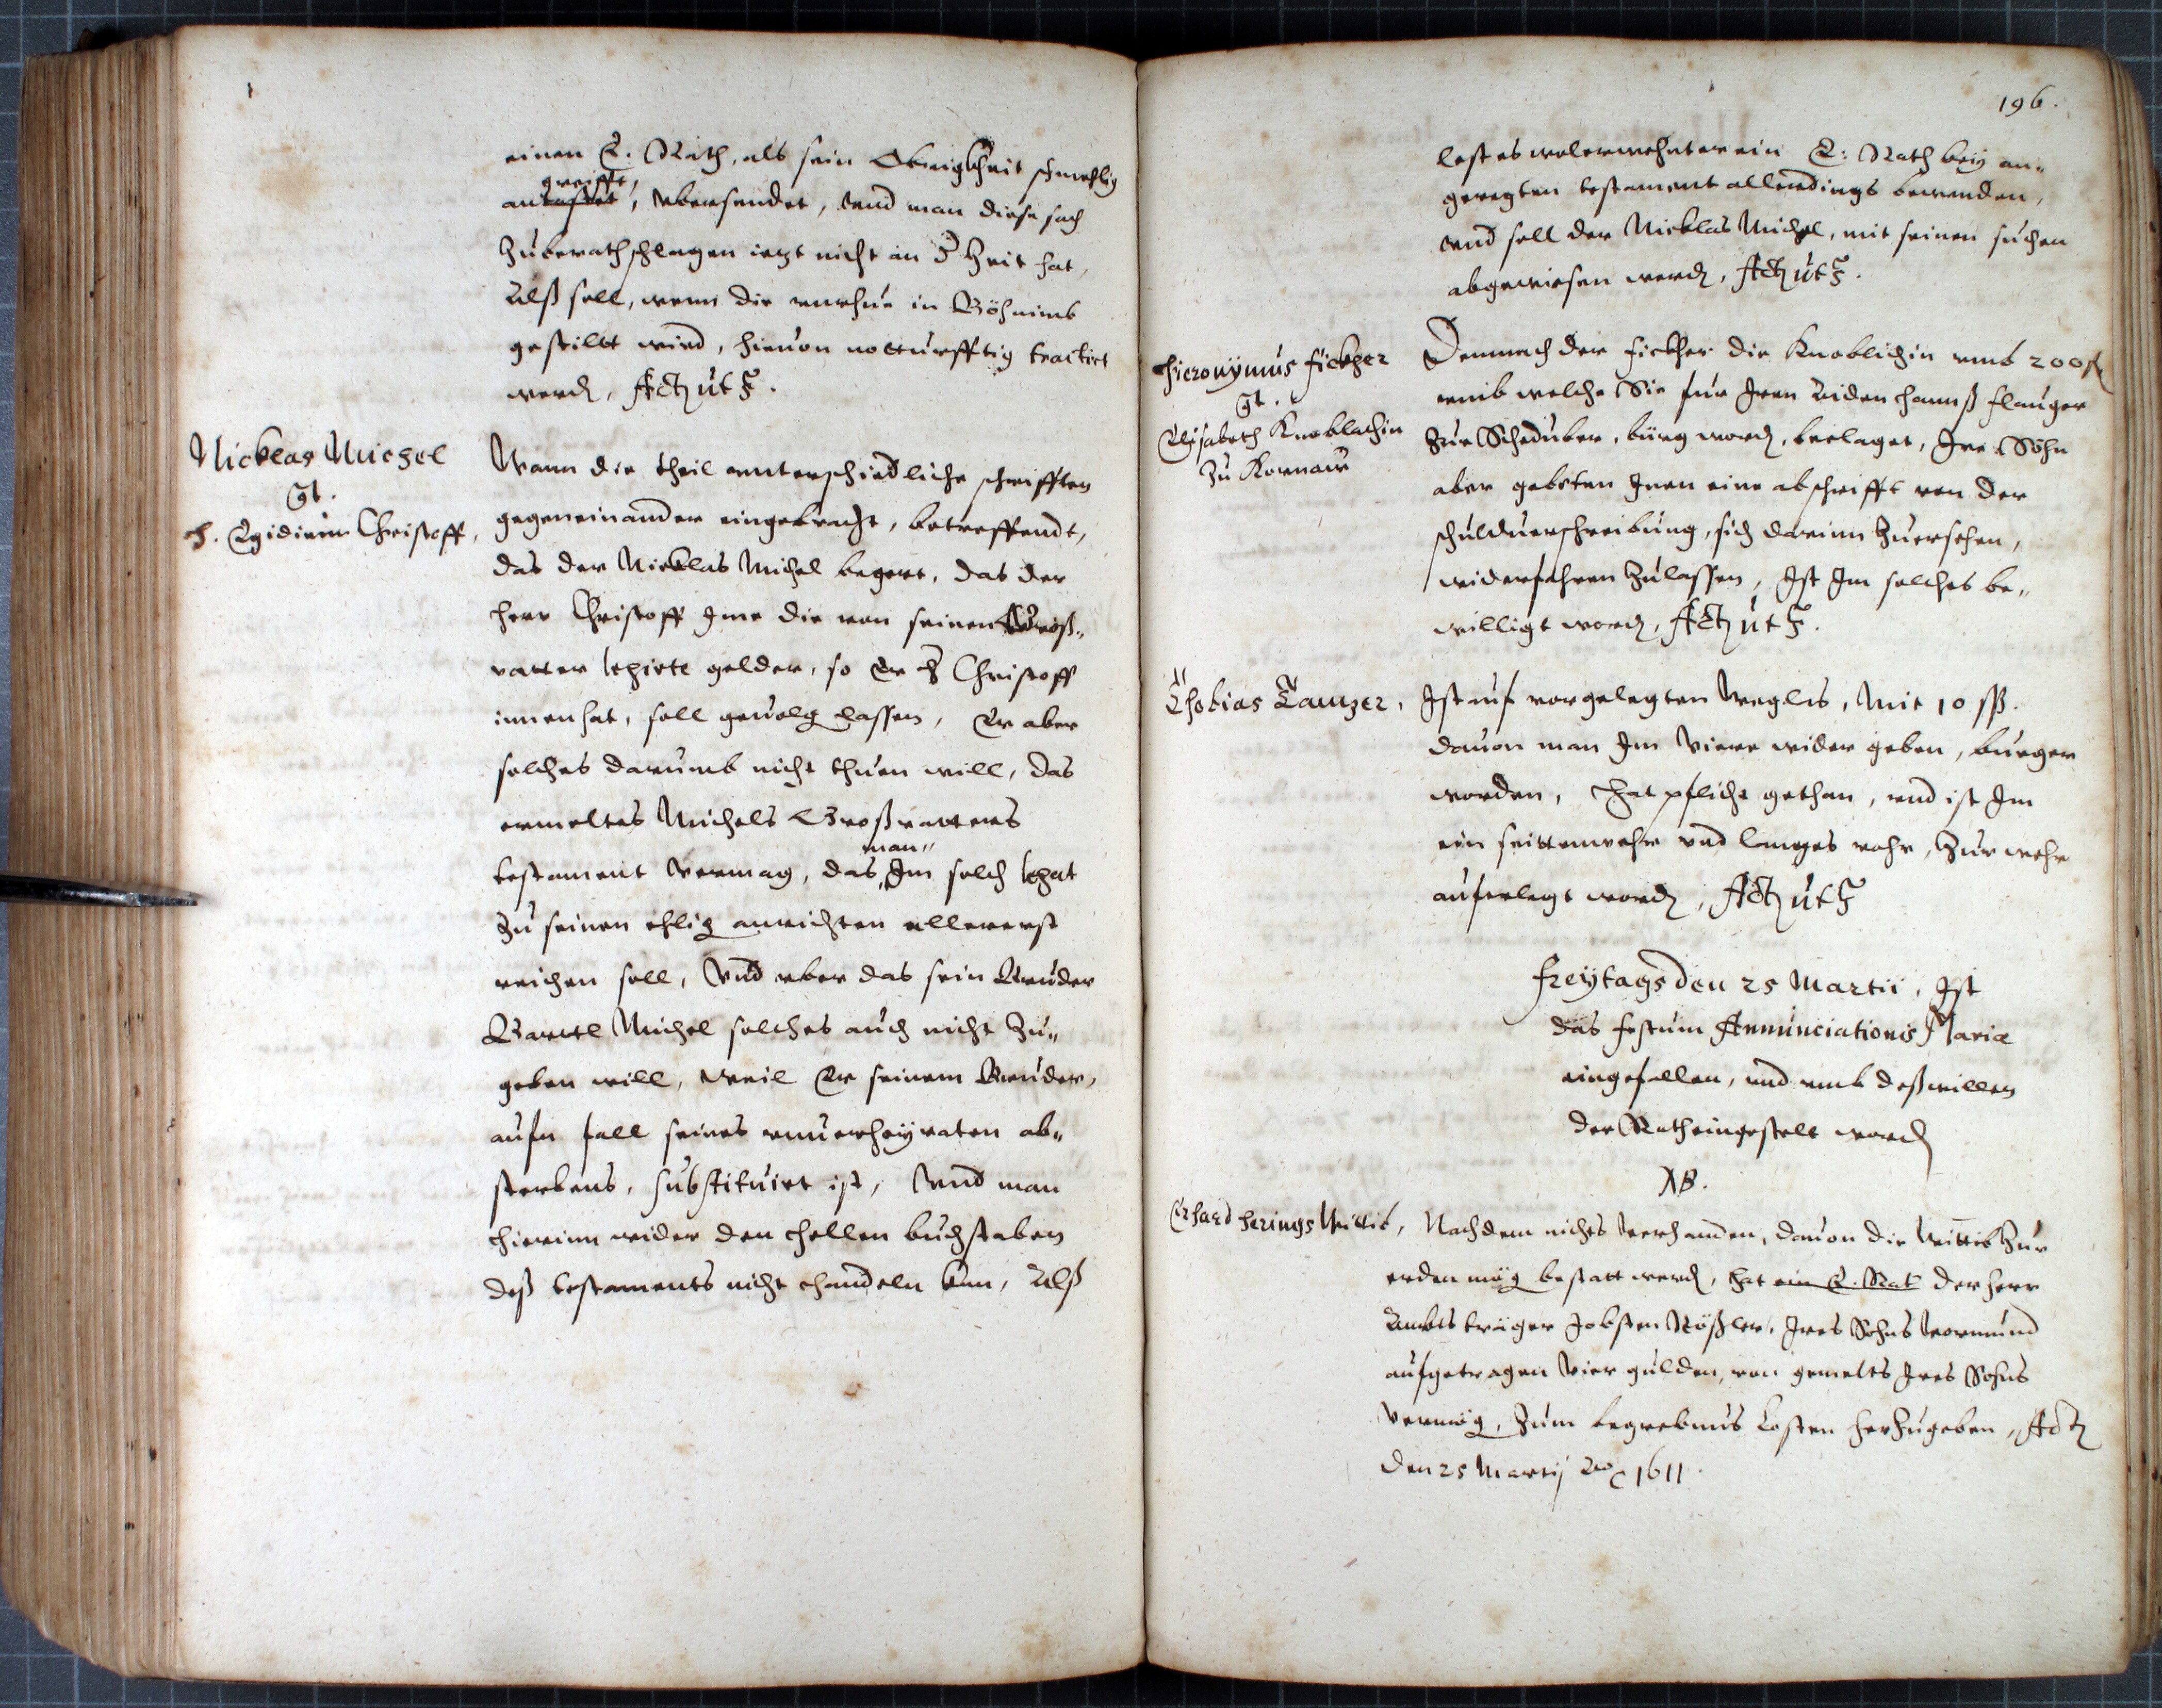 einen E. Rath, als sein Obrigkheit schmehlig
greifft,
antastet, vbersendet, vnd man diese sach
Zuberathschlagen ietzt nicht an d Zeit hat,
Alß soll, wenn die vnrhue in Böhaimb
gestillt wird, hieuon notturfftig tractirt
werd, Act ut s.
Nicklas Michel
gt.
H. Egidium Christoff,
Wann die theil vnterschiedliche schrifften
gegeneinander eingebracht, betreffendt,
das der Nicklas Michel begert, das der
herr Christoff Ime die von seinen Groß„
vatter legirte gelder, so Er H Christoff
innenhat, soll geuolg lassen, Er aber
solches darumb nicht thuen will, das
ermeltes Michels Großvatters
man„
testament vermag, das Im solch legat
Zu seinen ehlig anrichten allererst
reichen soll, Vnd vber das sein Bruder
Bartl Michel solches auch nicht Zu„
geben will, weil Er seinem Bruder,
aufn fall seines vnuerheyraten ab„
sterbens, substituirt ist, Vnd man
hierinn wider den hellen buchstaben
deß testaments nicht handeln kan, Alß
196.
lest es wolermehnter ein E: Rath bey an„
geregten testament allerdings bewenden,
vnd soll der Nicklas Michel, mit seinen suchen
abgewiesen werd, Act ut s.
Hieronymus Fickher
gt.
Elisabeth Knoblachin
Zu Kornau
Demnach der Fickher die Knoblichin vmb 200 fl
vmb welche Sie fur Iren Aiden Hannß Flauger
Zur Schönber, bürg word, beclaget, Ire Söhn
aber gebeten Inen eine abschrifft von der
schulduerschreibung, sich darinn Zuersehen,
widerfahren Zulassen, Ist Im solches be„
willigt word, Act ut s.
Thobias Tanzer,
Ist auf vorgelegten Weglas, Mit 10 fl.
dauon man Im Viere wider geben, burger
worden, Hat pflicht gethan, vnd ist Im
ein seittenwehr vnd langes rohr, Zur wehr
auferlegt word, Act ut s
Freytags den 25 Martii, Ist
das festum Annunciationis Mariæ
eingefallen, vnd vmb deßwillen
der Rath eingestelt word
NB.
Erhard Herings Wittib,
Nachdem nichts verhanden, dauon die Wittib Zur
erden mög bestatt werd, hat ein E. Rat der herr
Ambtstrager Jobsten Rößler, Ires Sohns Vormund
aufgetragen Vier gulden, von gemelts Ires Sohns
vermög, Zum begrebnus Costen herZugeben, Act
den 25 Martij Ao 1611.